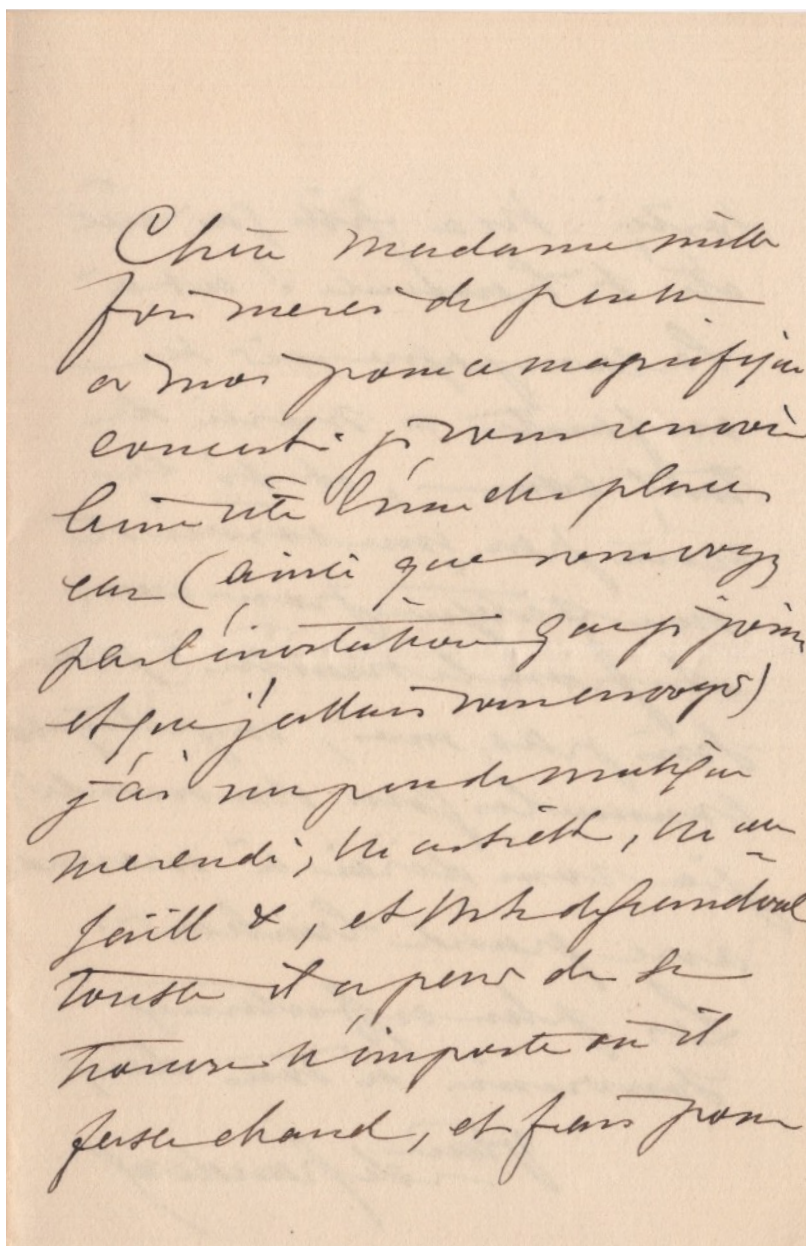 Chère Madame mille
fois merci de penser
à moi pour ce magnifique
concert. je vous renvoie
bien vite l'une des places
car (ainsi que vous voyez
par l'invitation que je joins
et que j'allais vous envoyer)
j'ai un peu de musique
mercredi, et
, et de Grandval
tousse il a peur de se
trouver n'importe où il
fasse chaud, et frais pour